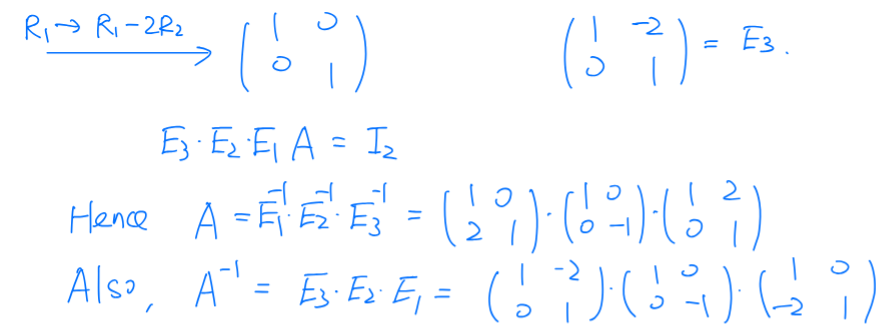 R₁→ R₁-2R₂ ⟶ (1 0; 0 1) (1 -2; 0 1) = E₃.
E₃·E₂·E₁ A = I₂
Hence A = E₁⁻¹·E₂⁻¹·E₃⁻¹ = (1 0; 2 1)·(1 0; 0 -1)·(1 2; 0 1)
Also, A⁻¹ = E₃·E₂·E₁ = (1 -2; 0 1)·(1 0; 0 -1)·(1 0; -2 1)